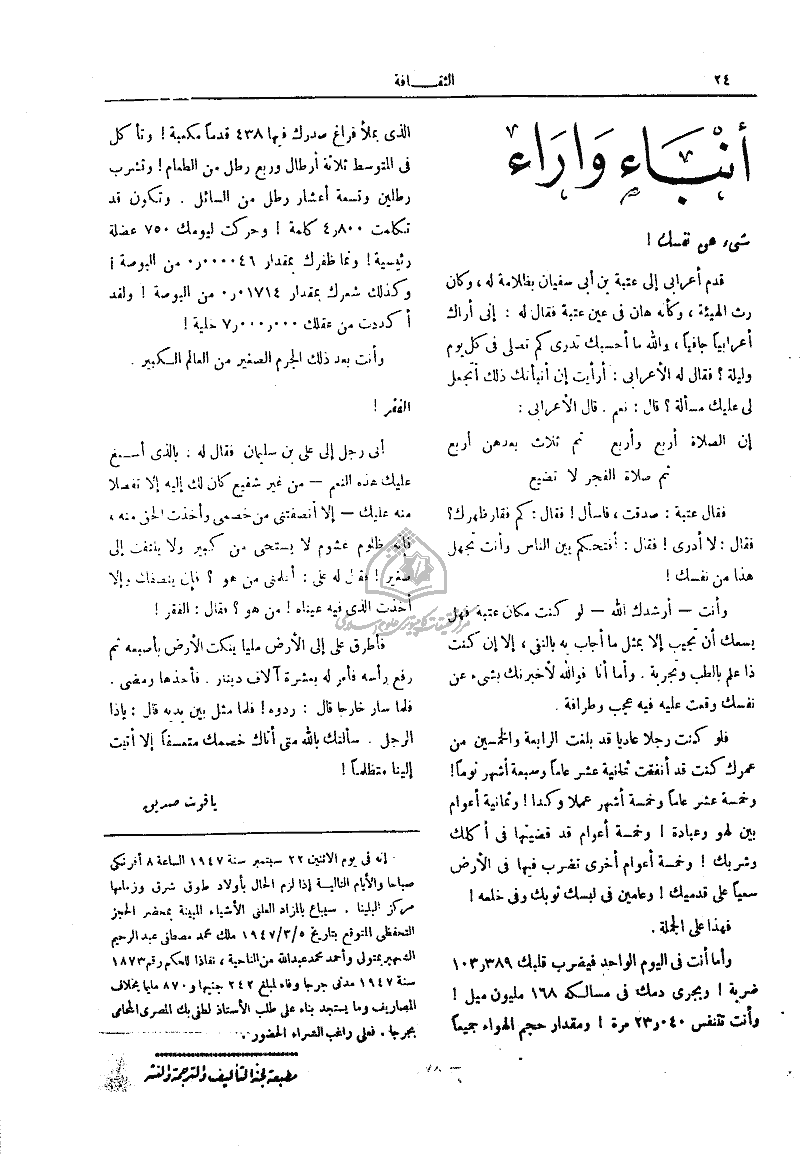 ٢٤
الثقـــافة
أَنْبَاء وَآرَاء
شيء عن نفسك !
قدم أعرابى إلى عتبة بن أبى سفيان بظلامة له ، وكان
رث الهيئة ، وكأنه هان فى عين عتبة فقال له : إنى أراك
أعرابياً جافياً ، والله ما أحسبك تدرى كم تصلى فى كل يوم
وليلة ؟ فقال له الأعرابى : أرأيت إن أنبأتك ذلك أتجعل
لى عليك مسألة ؟ قال : نعم . قال الأعرابى :
إن الصلاة أربع وأربع ثم ثلاث بعدهن أربع
ثم صلاة الفجر لا تضيع
فقال عتبة : صدقت ، فاسأل ! فقال : كم فقار ظهرك ؟
فقال : لا أدرى ! فقال : أفتحكم بين الناس وأنت تجهل
هذا من نفسك !
وأنت — أرشدك الله — لو كنت مكان عتبة فهل
يسعك أن تجيب إلا بمثل ما أجاب به بالنفى ، إلا إن كنت
ذا علم بالطب وتجربة . وأما أنا فوالله لأخبرنك بشىء عن
نفسك وقعت عليه فيه عجب وطرافة .
فلو كنت رجلا عاديا قد بلغت الرابعة والخمسين من
عمرك كنت قد أنفقت ثمانية عشر عاماً وسبعة أشهر نوماً !
وخمسة عشر عاماً وخمسة أشهر عملا وكدا ! وثمانية أعوام
بين لهو وعبادة ! وخمسة أعوام قد قضيتها فى أكلك
وشربك ! وخمسة أعوام أخرى تضرب فيها فى الأرض
سعياً على قدميك ! وعامين فى لبسك ثوبك وفى خلعه !
فهذا على الجملة .
وأما أنت فى اليوم الواحد فيضرب قلبك ١٠٣٫٣٨٩
ضربة ! ويجرى دمك فى مسالكه ١٦٨ مليون ميل !
وأنت تتنفس ٢٣٫٠٤٠ مرة ! ومقدار حجم الهواء جميعاً
الذى يملأ فراغ صدرك فيها ٤٣٨ قدماً مكعبة ! وتأكل
فى المتوسط ثلاثة أرطال وربع رطل من الطعام ! وتشرب
رطلين وتسعة أعشار رطل من السائل . وتكون قد
تكلمت ٤٫٨٠٠ كلمة ! وحركت ليومك ٧٥٠ عضلة
رئيسية ! ونما ظفرك بمقدار ٠٫٠٠٠٠٤٦ من البوصة !
وكذلك شعرك بمقدار ٠٫٠١٧١٤ من البوصة ! ولقد
أكددت من عقلك ٧٫٠٠٠٫٠٠٠ خلية !
وأنت بعد ذلك الجرم الصغير من العالم الكبير .
الفقر !
أتى رجل إلى على بن سليمان فقال له : بالذى أسبغ
عليك هذه النعم — من غير شفيع كان لك إليه إلا تفضلا
منه عليك — إلا أنصفتنى من خصمى وأخذت الحق منه ،
فإنه ظلوم غشوم لا يستحى من كبير ولا يلتفت إلى
صغير ! فقال له على : أعلمنى من هو ؟ فإن ينصفك وإلا
أخذت الذى فيه عيناه ! من هو ؟ فقال : الفقر !
فأطرق على إلى الأرض مليا ينكت الأرض بأصبعه ثم
رفع رأسه فأمر له بعشرة آلاف دينار . فأخذها ومضى .
فلما سار خارجا قال : ردوه ! فلما مثل بين يديه قال : ياذا
الرجل . سألتك بالله متى أتاك خصمك متعسفاً إلا أتيت
إلينا متظلماً !
ياقوت صديق
إنه فى يوم الاثنين ٢٢ سبتمبر سنة ١٩٤٧ الساعة ٨ أفرنكى
صباحا والأيام التالية إذا لزم الحال بأولاد طوق شرق وزمامها
مركز البلينا . سيباع بالمزاد العلنى الأشياء المبينة بمحضر الحجز
التحفظى المتوقع بتاريخ ١٩٤٧/٣/٥ ملك محمد مصطفى عبد الرحيم
الشهير بمتولى وأحمد محمد عبدالله من الناحية ، نفاذا للحكم رقم ١٨٧٣
سنة ١٩٤٧ مدنى جرجا وفاء لمبلغ ٢٤٢ جنيها و ٨٧٠ مليما بخلاف
المصاريف وما يستجد بناء على طلب الأستاذ لطفى بك المصرى المحامى
بجرجا . فعلى راغب الشراء الحضور .
مطبعة لجنة التأليف والترجمة والنشر